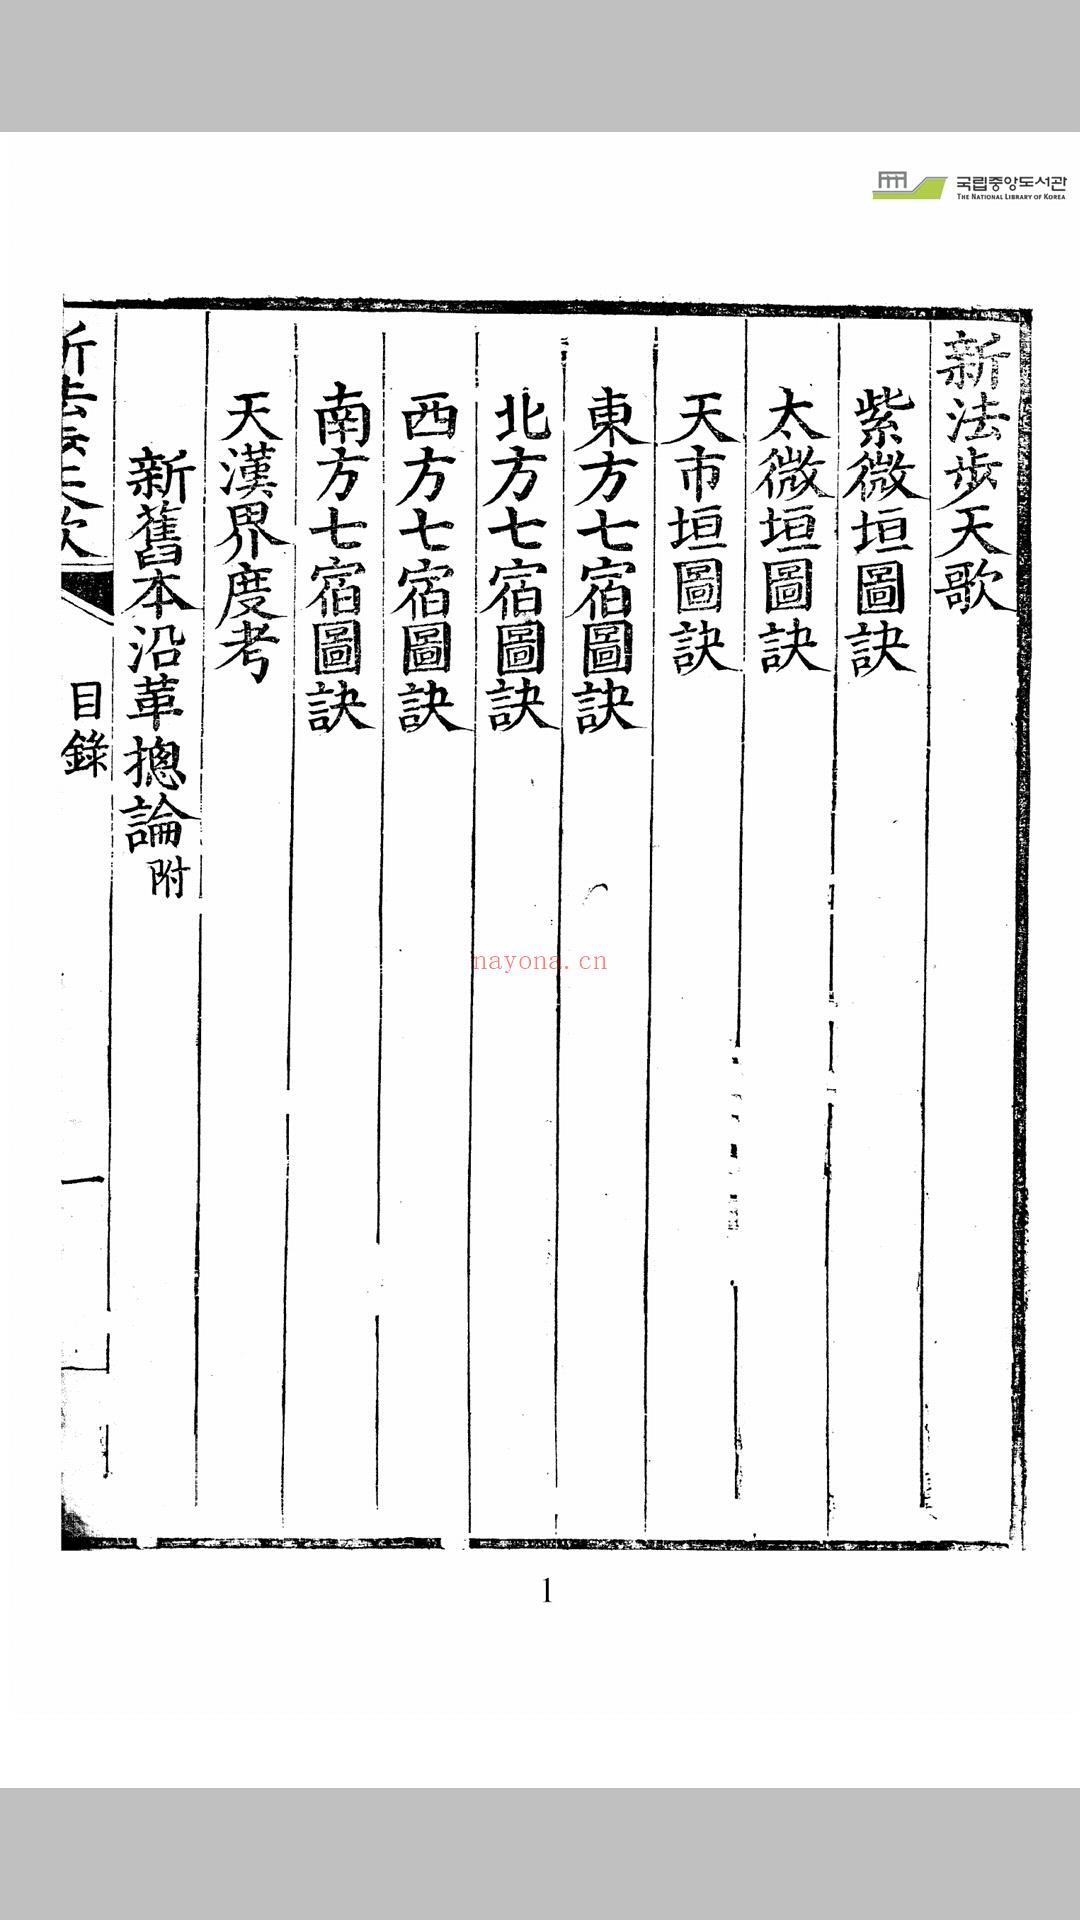 국립중앙도서관
THE NATIONAL LIBRARY OF KOREA
新法步天歌
紫微垣圖訣
太微垣圖訣
天市垣圖訣
東方七宿圖訣
北方七宿圖訣
西方七宿圖訣
南方七宿圖訣
天漢界度考
新舊本沿革摠論附
新法步天歌
目錄
一
nayona.cn
1